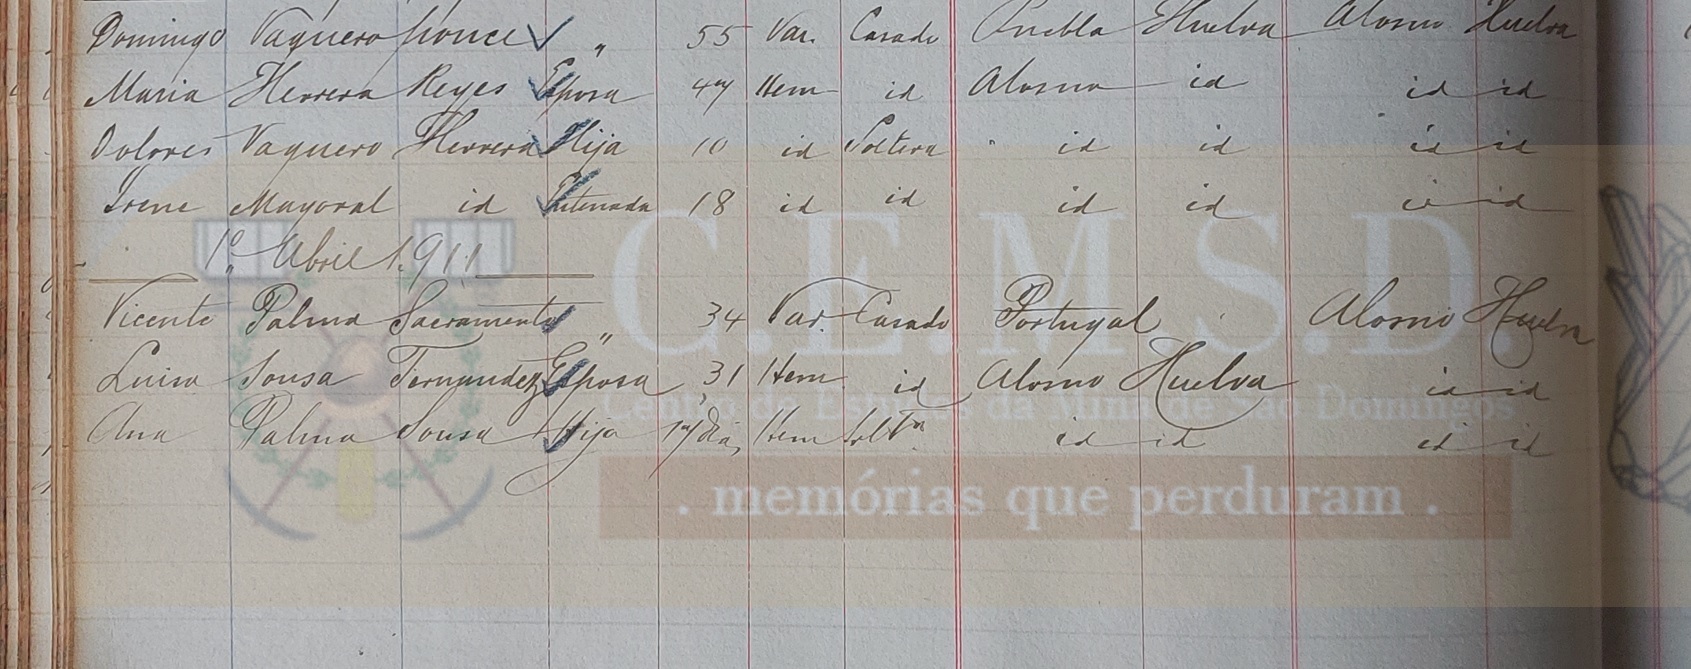 Domingo Vaquero Ponce " 55 Var. Casado Puebla Huelva Alosno Huelva
Maria Herrera Reyes Esposa 47 Hem id Alosno id id id
Dolores Vaquero Herrera Hija 10 id Soltera id id id id
Irene Mayoral id Entenada 18 id id id id id id
1º Abril 1.911
Vicente Palma Sacramento " 34 Var. Casado Portugal Alosno Huelva
Luisa Sousa Fernandez Esposa 31 Hem. id Alosno Huelva id id
Ana Palma Sousa Hija 17 dia Hem Soltª id id id id
C.E.M.S.D.
Centro de Estudos da Mina de São Domingos
. memórias que perduram .